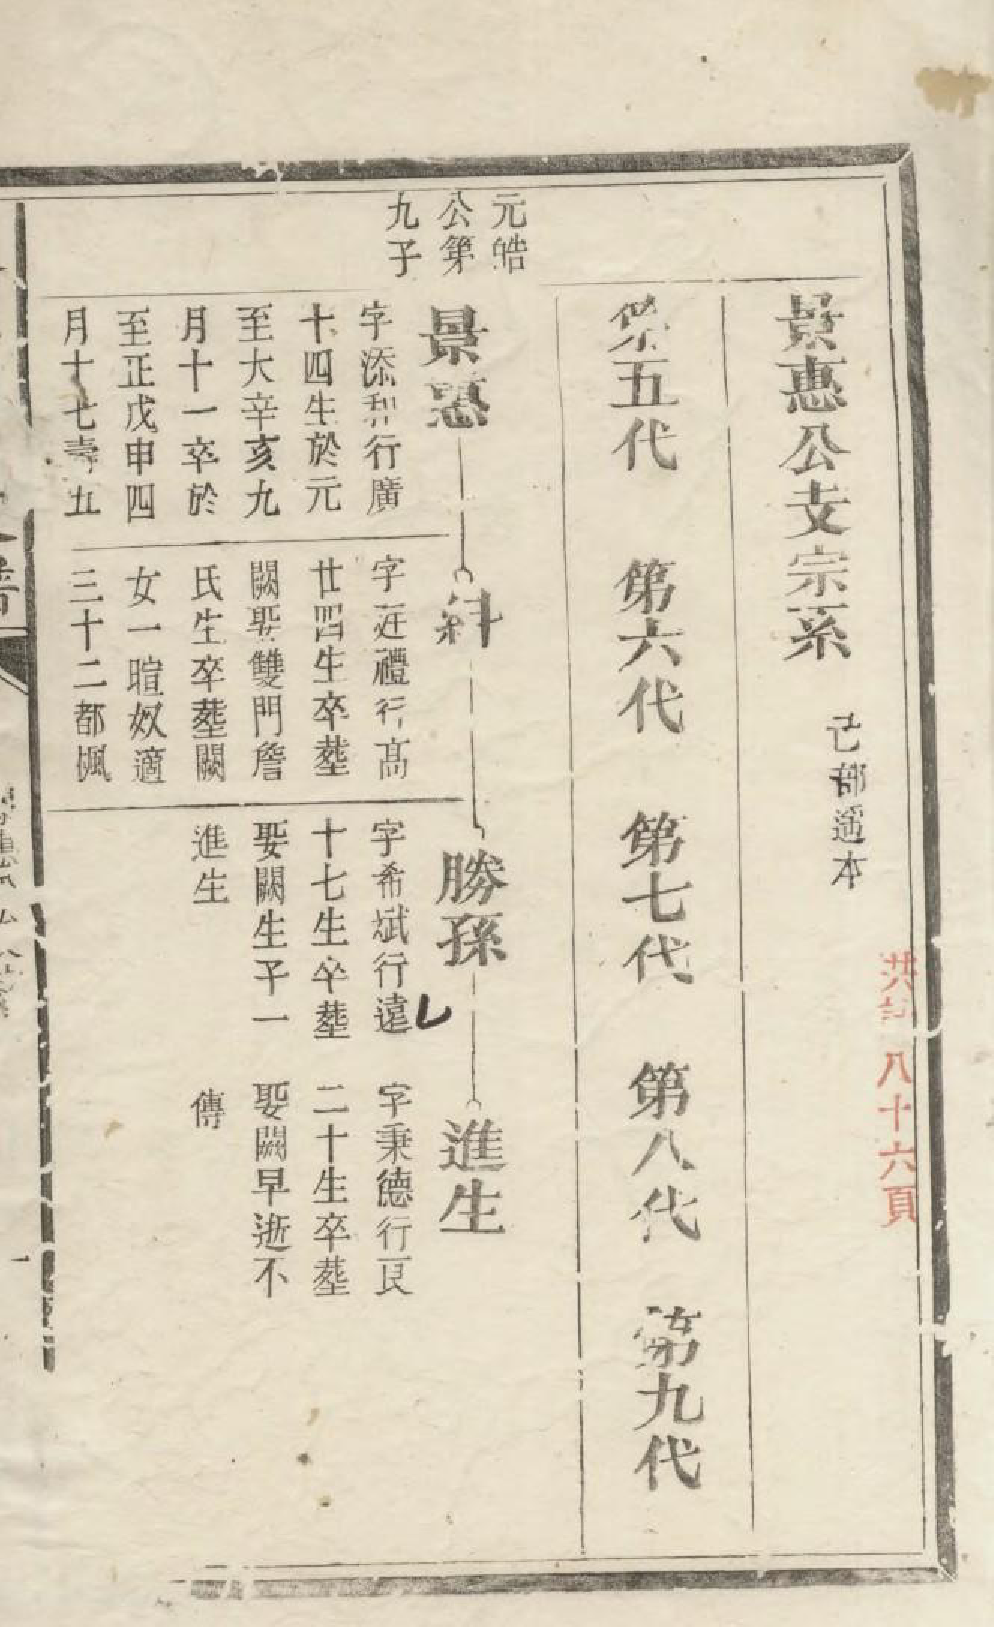 景惠公支宗系
亡部遥本
共計八十六頁
第五代 第六代 第七代 第八代 第九代
元皓
公第
九子
景惠
字添和行廣
十四生於元
至大辛亥九
月十一卒於
至正戊申四
月十七壽五
斜
字廷禮行高
廿四生卒塟
闕娶雙門詹
氏生卒塟闕
女一暄奴適
三十二都楓
勝孫
字希斌行遠
十七生卒塟
娶闕生子一
進生
進生
字秉德行良
二十生卒塟
娶闕早逝不
傳